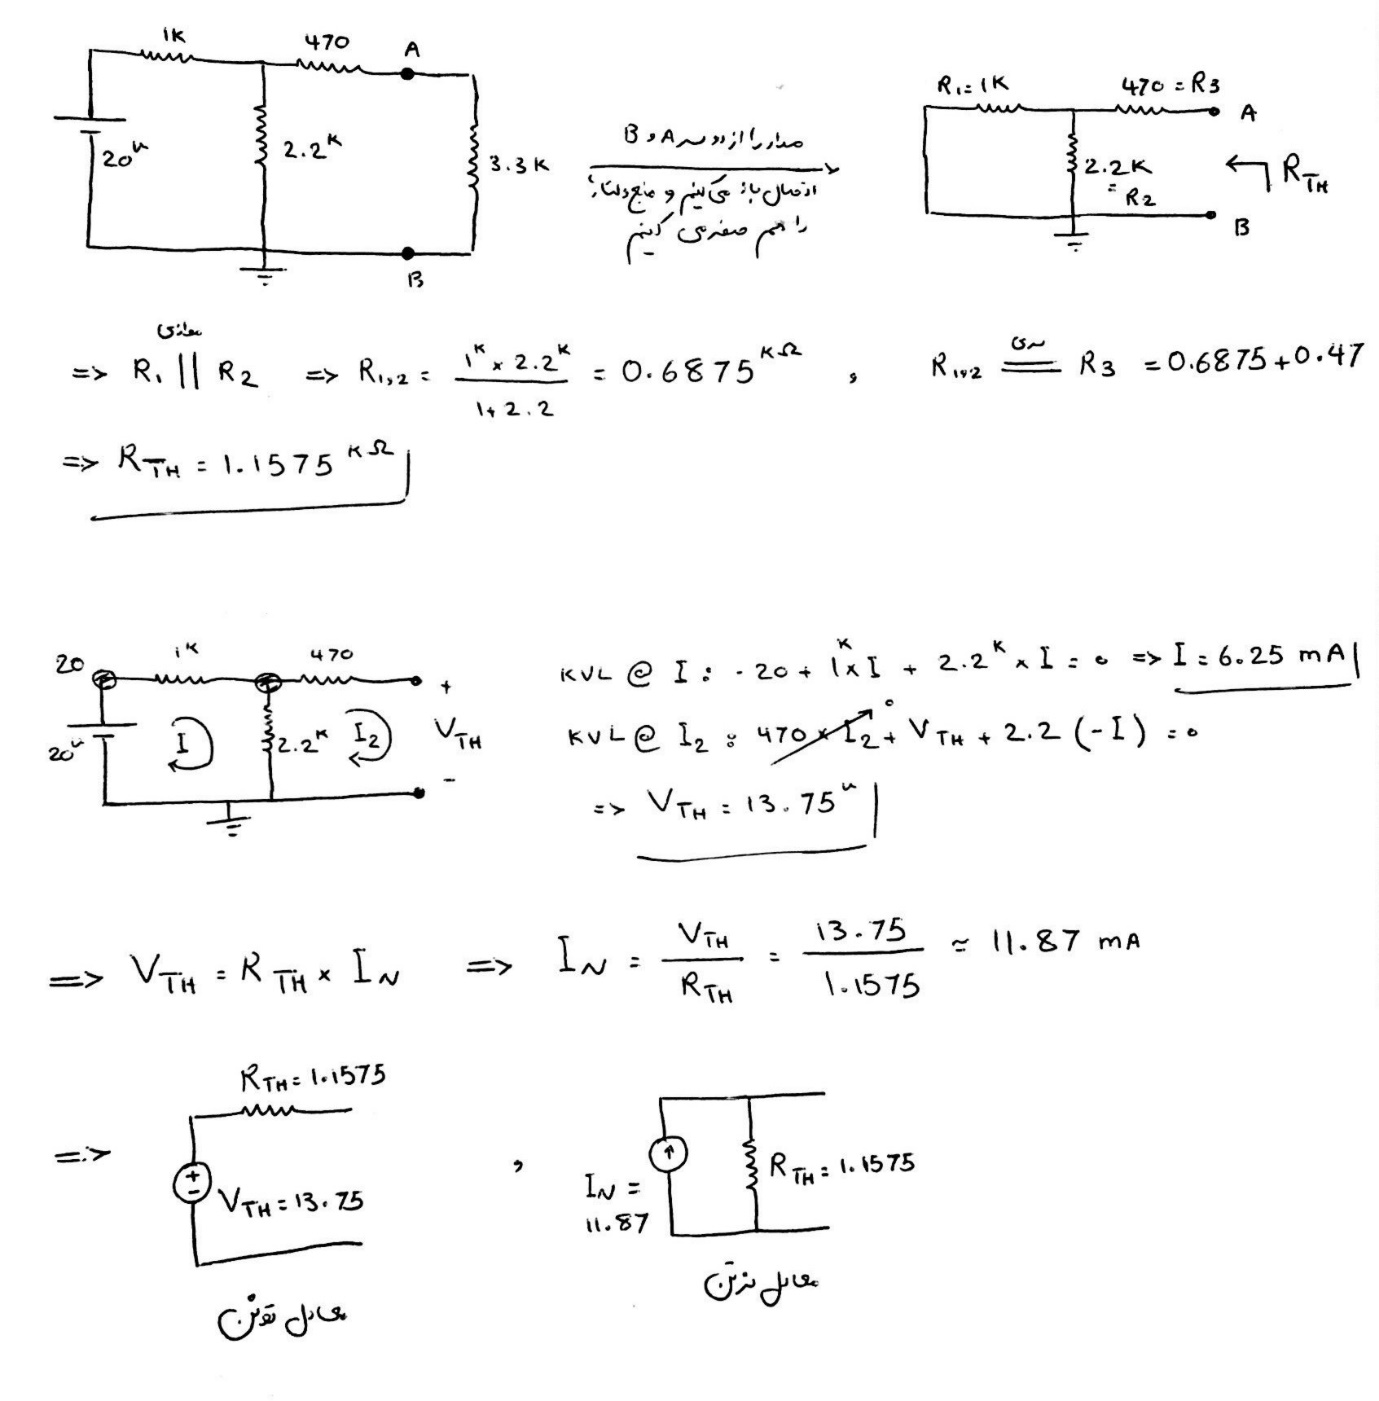 1K 470 A
20v 2.2K 3.3K
B
مدار را از دو سر A و B
اتصال باز می کنیم و منبع ولتاژ
را هم صفر می کنیم
R1=1K 470=R3
A
2.2K
=R2
RTH
B
موازی
=> R1 || R2 => R1,2 = 1K × 2.2K / 1+2.2 = 0.6875 KΩ , R1,2 سری R3 = 0.6875+0.47
=> RTH = 1.1575 KΩ
20 1K 470
20v I 2.2K I2 + VTH -
KVL @ I : -20 + 1K×I + 2.2K × I = 0 => I = 6.25 mA
KVL @ I2 : 470 × I2 + VTH + 2.2 (-I) = 0
0
=> VTH = 13.75v
=> VTH = RTH × IN => IN = VTH / RTH = 13.75 / 1.1575 ≈ 11.87 mA
RTH = 1.1575
=> + - VTH = 13.75 , IN = 11.87 RTH = 1.1575
معادل تونن
معادل نرتن